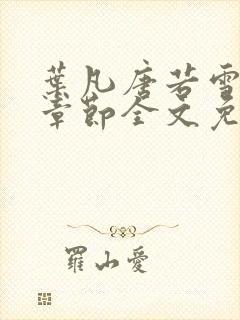 葉凡唐若雪
章節全文免
羅小愛